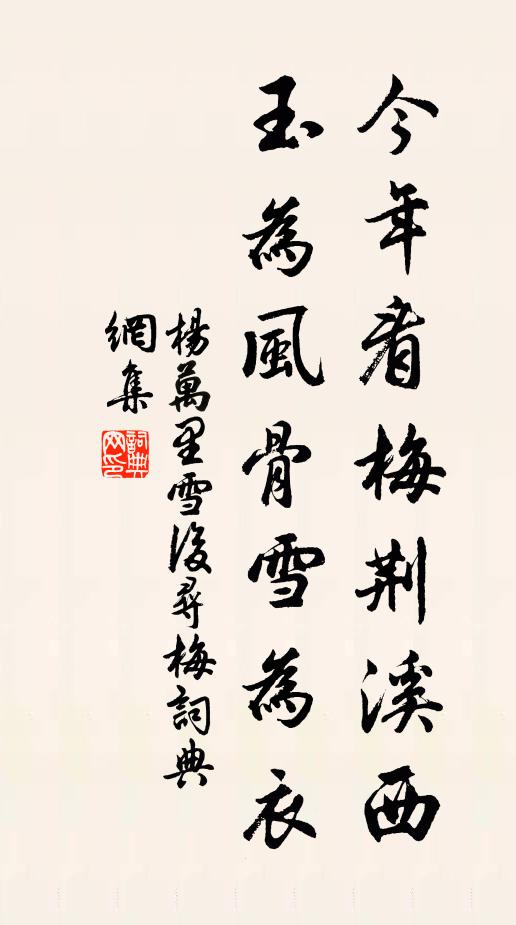 今年看梅荆溪西
玉為風骨雪為衣
楊萬里雪後尋梅詞典
網集
詞典
网